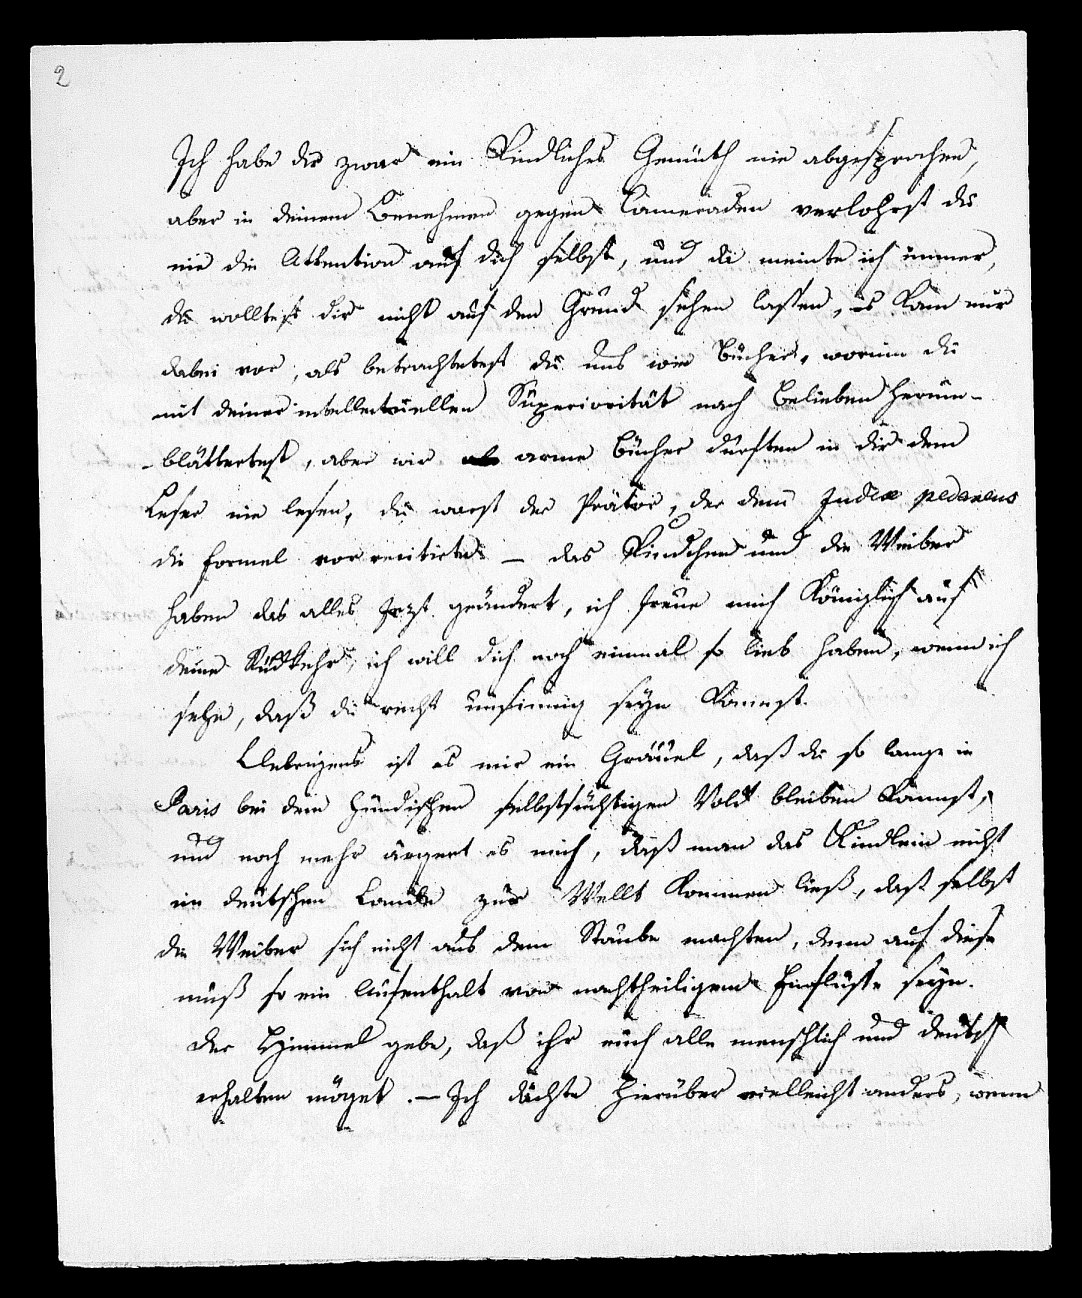 2
Ich habe dir zwar ein Kindliches Gemüth nie abgesprochen,
aber in deinem Benehmen gegen Cameraden verlohrst du
nie die Attention auf dich selbst, und da meinte ich immer,
du wolltest dir nicht auf den Grund sehen lassen, es kam mir
dabei vor, als betrachtetest du uns wie Bücher, worinn du
mit deiner intellectuellen Superiorität nach Belieben herum-
-blättertest, aber wir arme Bücher durften in dir dem
Leser nie lesen, du warst der Prätor, der dem Judex pedaneus
die Formel vor recitirte – das Kindchen und die Weiber
haben das alles jezt geändert, ich freue mich Königlich auf
deine Rückkehr, ich will dich noch einmal so lieb haben, wenn ich
sehe, daß du recht unsinnig seyn kannst.
Uebrigens ist es mir ein Gräuel, daß du so lange in
Paris bei dem hündischen selbstsüchtigen Volck bleiben kannst,
und noch mehr ärgert es mich, daß man das Kindlein nicht
im deutschen Lande zur Wellt kommen ließ, daß selbst
die Weiber sich nicht aus dem Staube machten, denn auf diese
muß so ein Aufenthalt von nachtheiligem Einflusse seyn.
Der Himmel gebe, daß ihr euch alle menschlich und deutsch
erhalten möget. – Ich dächte hierüber vielleicht anders, wenn